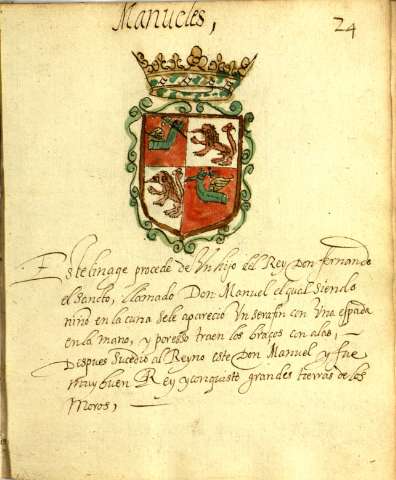 Manueles,
24
Este linage procede de Un hijo del Rey Don fernando
el sancto, llamado Don Manuel el qual siendo
niño en la cuna sele aparecio Un serafin con Una espada
en la mano, y poresso traen los braços con alas,
Dispues sucedio al Reyno este Don Manuel y fue
muy buen Rey y conquisto grandes tierras de los
moros,